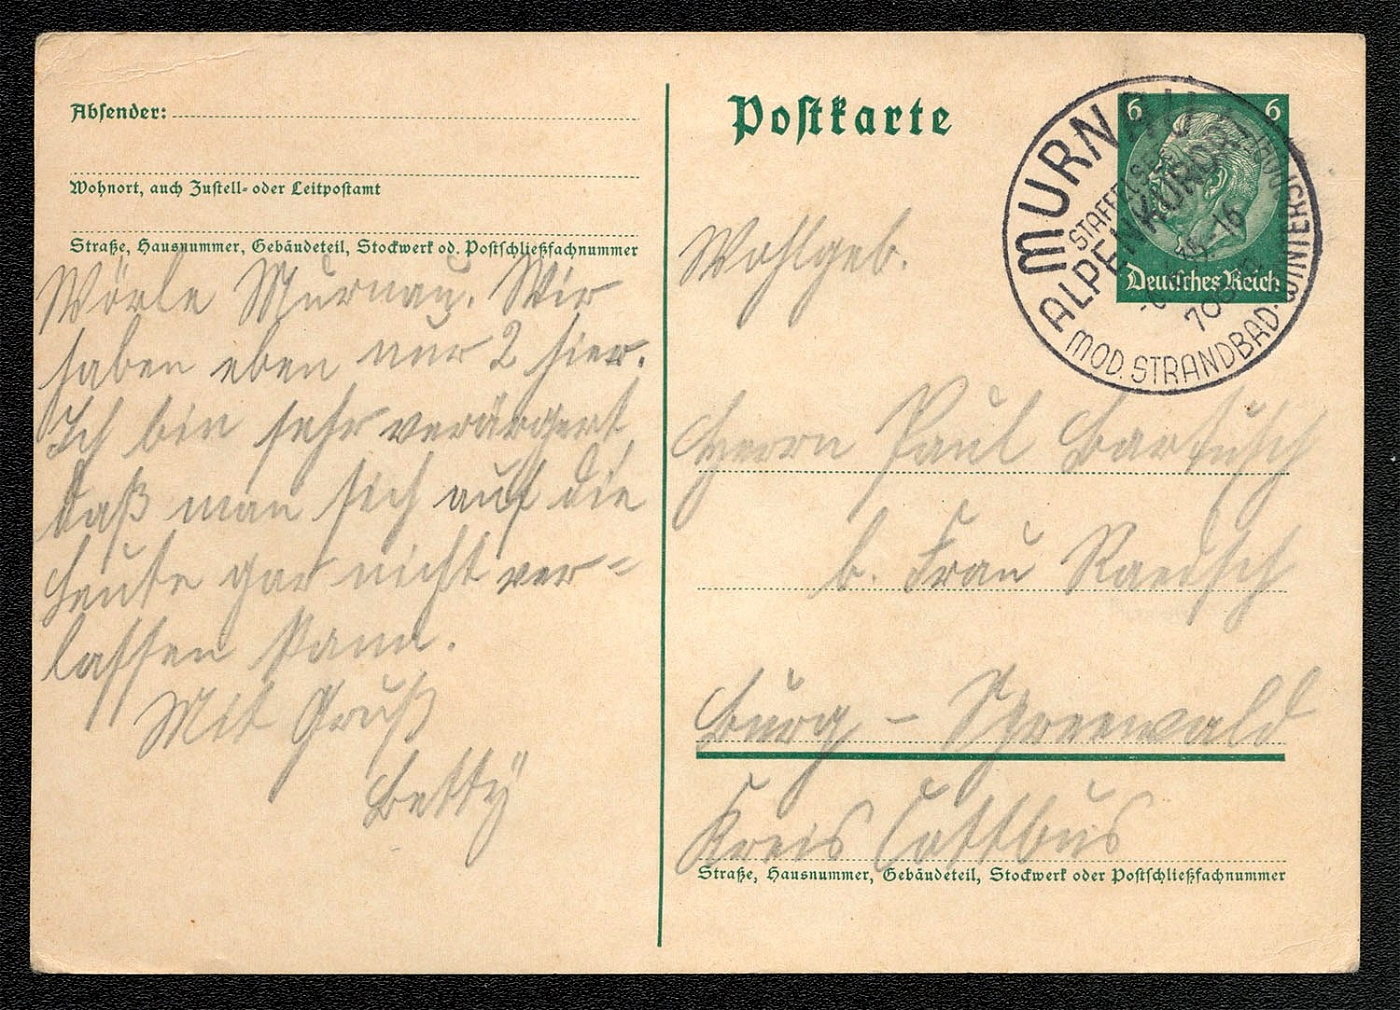 Absender:
Wohnort, auch Zustell- oder Leitpostamt
Straße, Hausnummer, Gebäudeteil, Stockwerk od. Postschließfachnummer
Wörle Murnau. Wir
haben eben nur 2 hier.
Ich bin sehr verärgert
daß man sich auf die
Leute gar nicht ver=
lassen kann.
Mit Gruß
Betty
Postkarte
6 6
Deutsches Reich
MURNAU
STAFFELSEE
ALPENKURORT
MOD. STRANDBAD
Wohlgeb.
Herrn Paul Bartusch
b. Frau
Burg - Spreewald
Kreis Cottbus
Straße, Hausnummer, Gebäudeteil, Stockwerk oder Postschließfachnummer